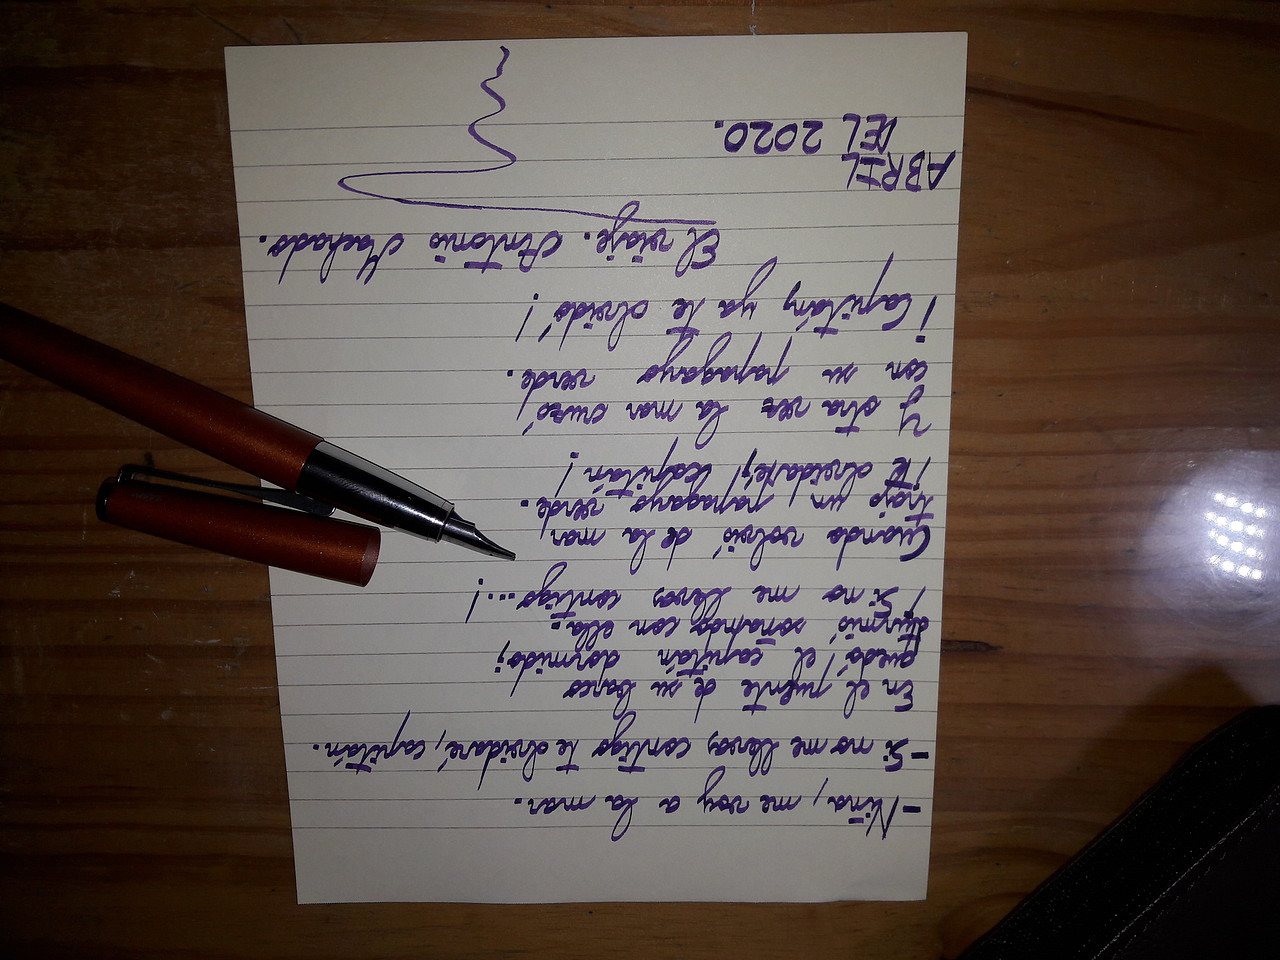 -Niña, me voy a la mar.
-Si no me llevas contigo te olvidaré, capitán.
En el puente de su barco
quedó el capitán dormido;
durmió soñando con ella.
¡Si no me llevas contigo...!
Cuando volvió de la mar,
trajo un papagayo verde.
¡Te olvidaré, capitán!
Y otra vez la mar cruzó,
con su papagayo verde.
¡Capitán, ya te olvidó!
El viaje. Antonio Machado.
ABRIL
DEL 2020.